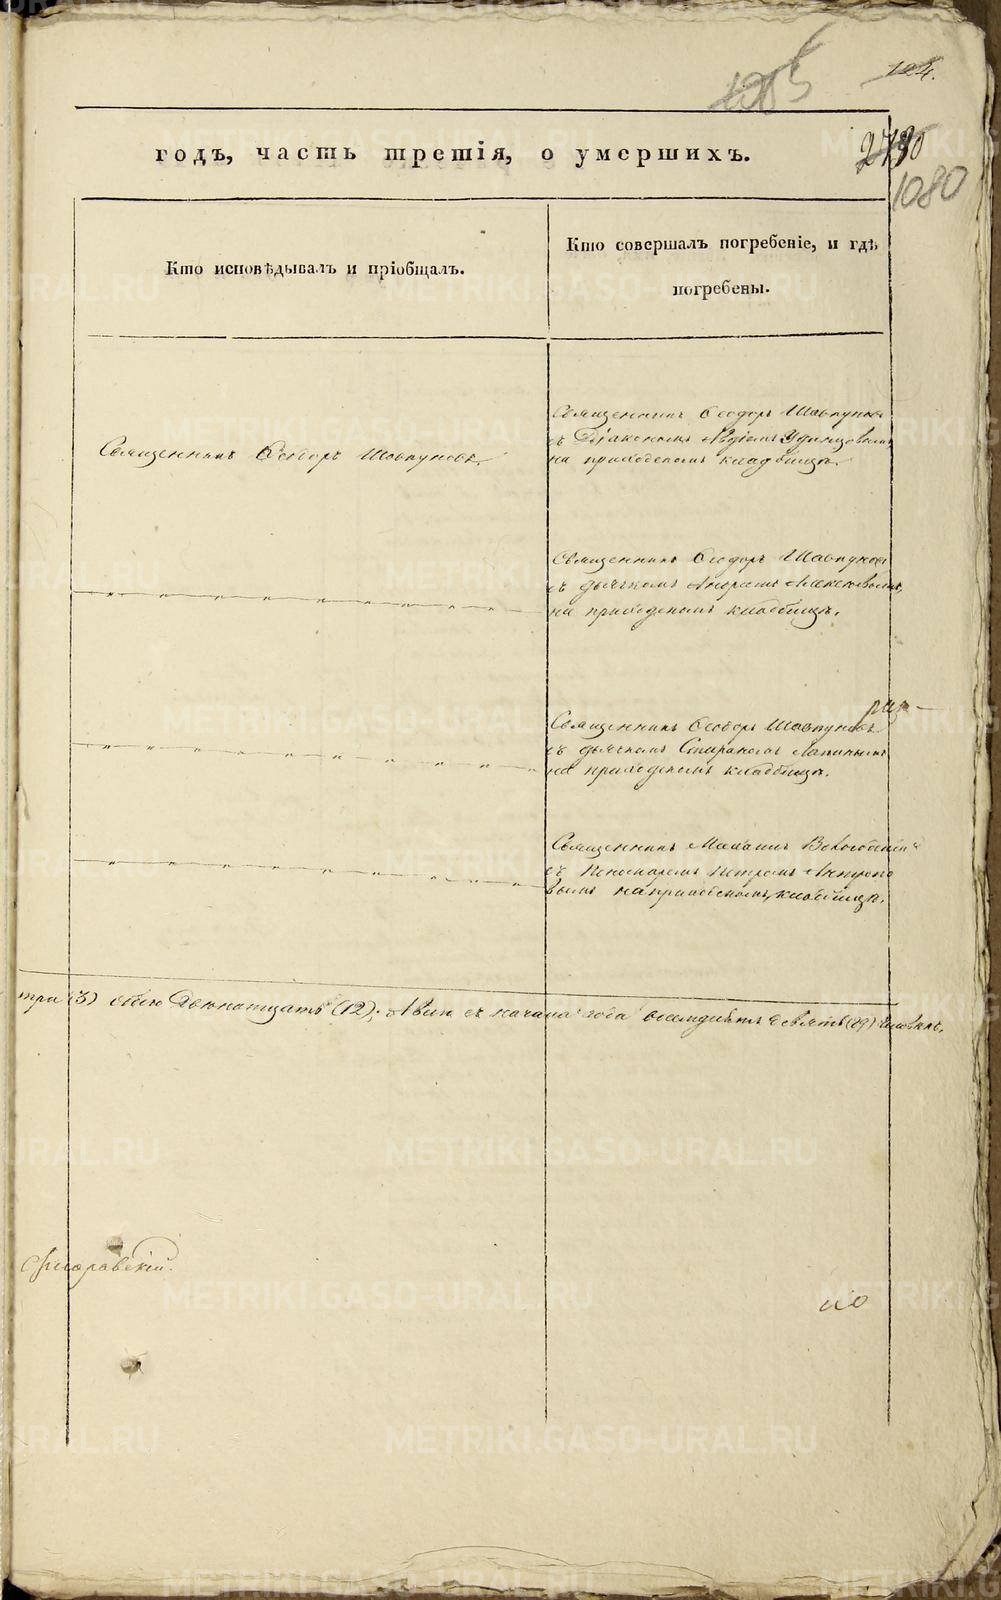 104.
1080
годъ, часть третія, о умершихъ.
Кто исповѣдывалъ и пріобщалъ.
Кто совершалъ погребеніе, и гдѣ
погребены.
Священникъ Ѳеодоръ Шавкуновъ.
Священникъ Ѳеодоръ Шавкуновъ
съ Діакономъ Авдіемъ Удинцовымъ,
на приходскомъ кладбищѣ.
Священникъ Ѳеодоръ Шавкуновъ
съ дьячкомъ Андреемъ Алексѣевымъ,
на приходскомъ кладбищѣ.
Священникъ Ѳеодоръ Шавкуновъ
съ дьячкомъ Лапинымъ
на приходскомъ кладбищѣ.
Священникъ
съ Пономаремъ Петромъ
вымъ на приходскомъ кладбищѣ.
три (3) обоего Двенатцать (12); Авсѣхъ съ начала года восемдесятъ девять (89) Человѣкъ.
но
METRIKI.GASO-URAL.RU